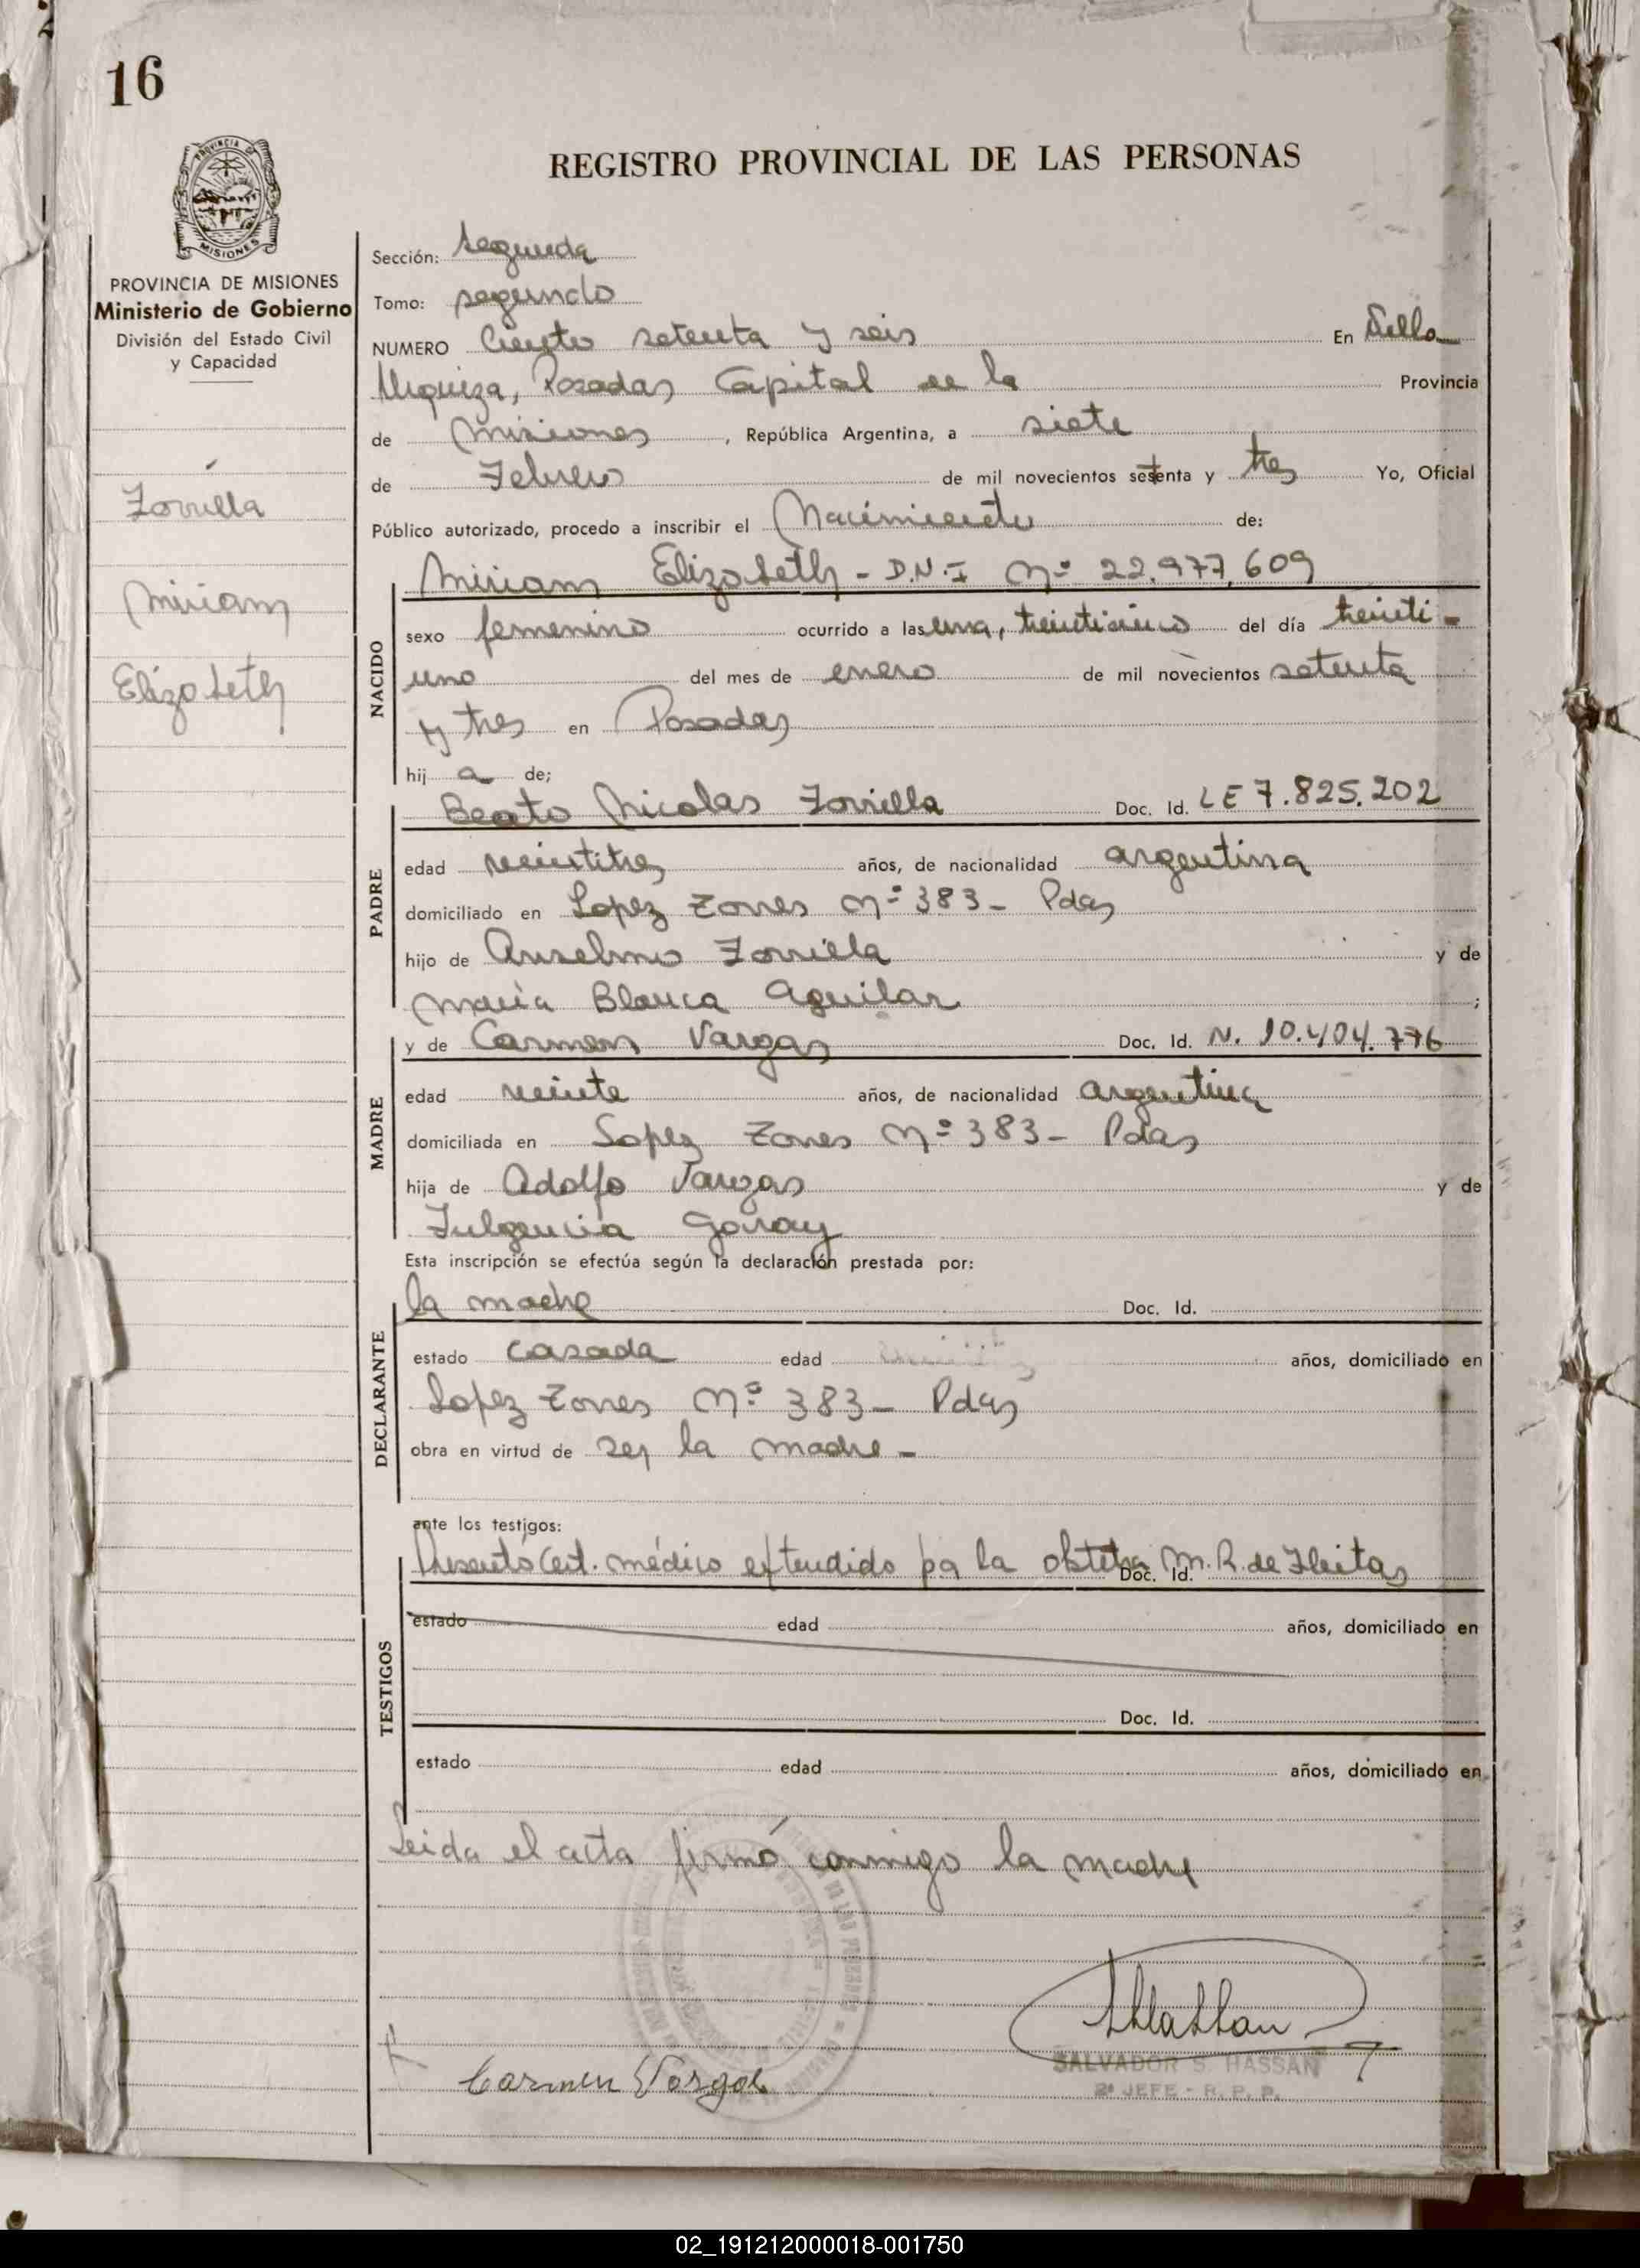 16
REGISTRO PROVINCIAL DE LAS PERSONAS
PROVINCIA DE
MISIONES
PROVINCIA DE MISIONES
Ministerio de Gobierno
División del Estado Civil
y Capacidad
Zorrilla
Miriam
Elizabeth
Sección: segunda
Tomo: segundo
NUMERO Ciento setenta y seis En Villa
Urquiza, Posadas Capital de la Provincia
de Misiones, República Argentina, a siete
de Febrero de mil novecientos setenta y tres Yo, Oficial
Público autorizado, procedo a inscribir el Nacimiento de:
Miriam Elizabeth - D.N.I Nº 22.977.609
NACIDO
sexo femenino ocurrido a las una, treinticinco del día treinti-
uno del mes de enero de mil novecientos setenta
y tres en Posadas
hij a de;
PADRE
Beato Nicolas Zorrilla Doc. Id. LE 7.825.202
edad veintitres años, de nacionalidad argentina
domiciliado en Lopez Torres Nº 383- Pdas
hijo de Anselmo Zorrilla y de
María Blanca Aguilar ;
MADRE
y de Carmen Vargas Doc. Id. N. 10.404.776
edad veinte años, de nacionalidad argentina
domiciliada en Lopez Torres Nº 383- Pdas
hija de Adolfo Vargas y de
Fulgencia Garay
Esta inscripción se efectúa según la declaración prestada por:
DECLARANTE
la madre Doc. Id.
estado casada edad años, domiciliado en
Lopez Torres Nº 383- Pdas
obra en virtud de ser la madre-
ante los testigos:
TESTIGOS
Presentó Cert. médico extendido por la obstetra M.R. de Fleitas Doc. Id.
estado edad años, domiciliado en
Doc. Id.
estado edad años, domiciliado en
Leida el acta firmó conmigo la madre
SALVADOR S. HASSAN
2º JEFE - R. P. P.
Carmen Vargas
02_191212000018-001750